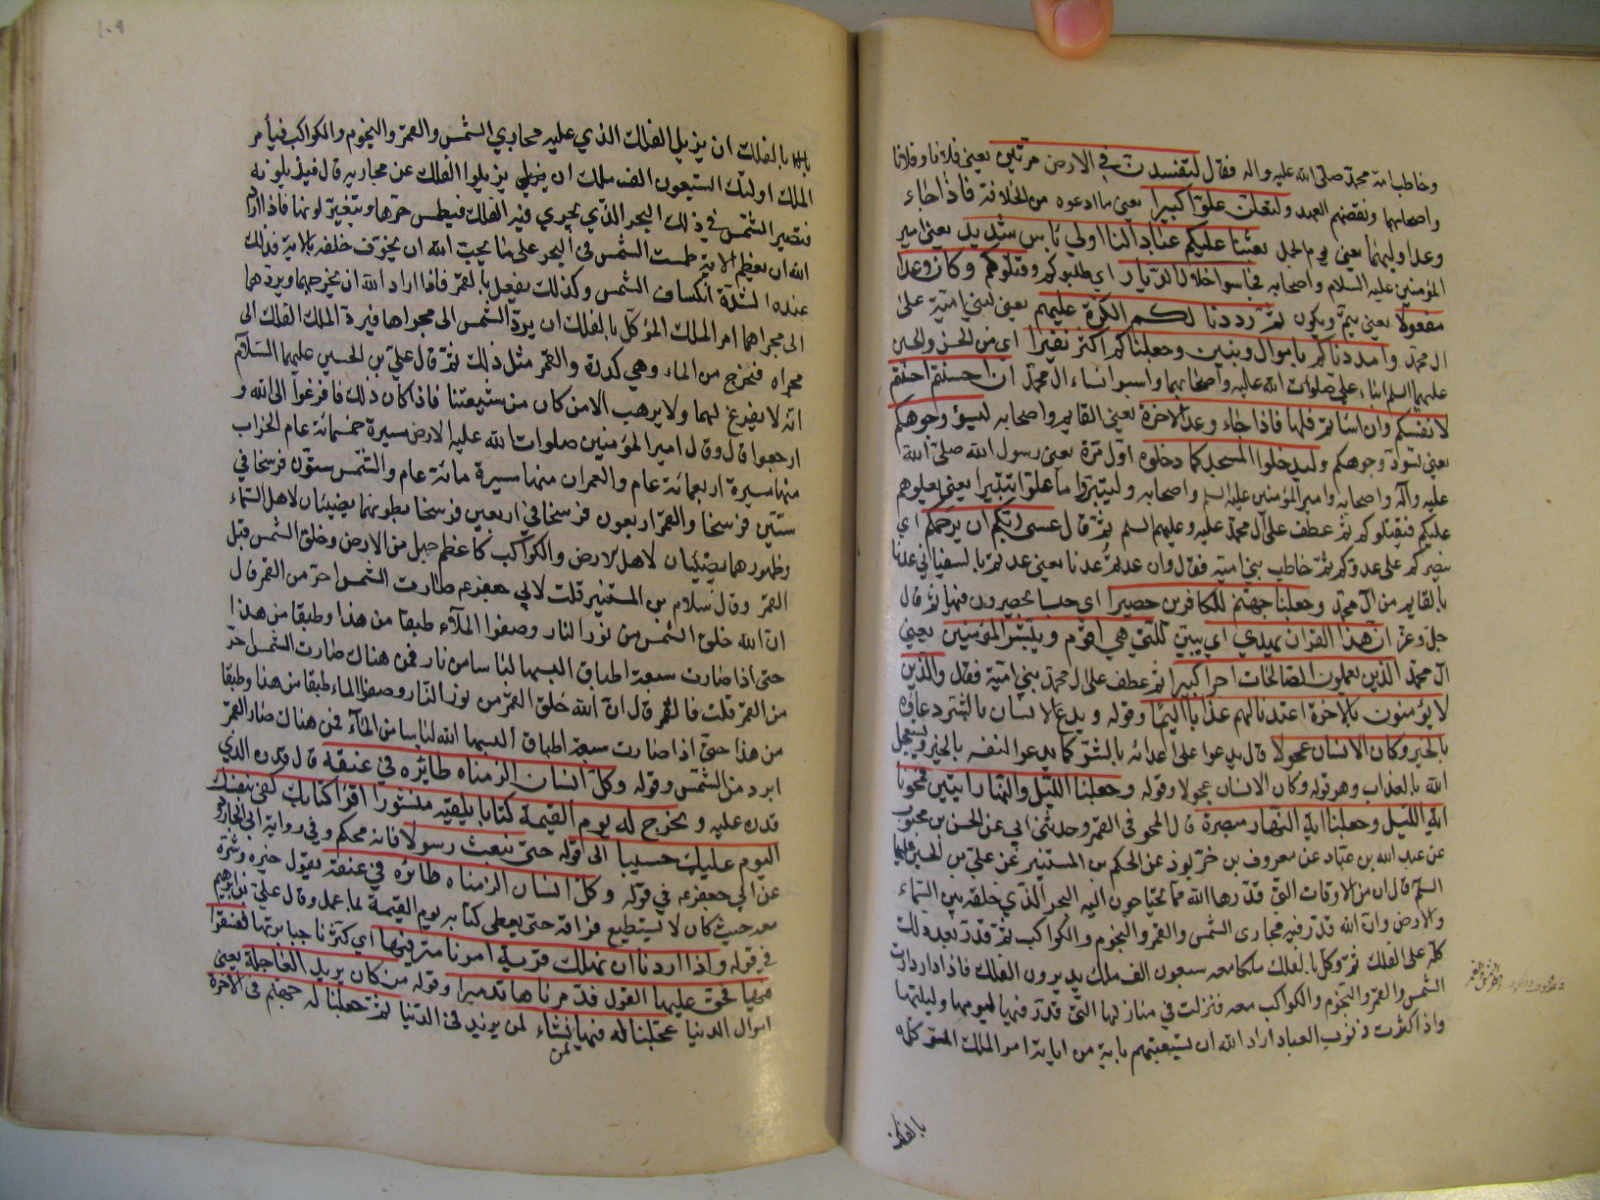 وخاطب امة محمد صلى الله عليه واله فقال لتفسدن في الارض مرتين يعني فلانا وفلانا
واصحابهما ونقضهم العهد ولتعلن علوا كبيرا يعني ما ادعوه من الخلافة فاذا جاء
وعد اوليهما يعني يوم الجمل بعثنا عليكم عبادا لنا اولي باس شديد يعني امير
المؤمنين عليه السلام واصحابه فجاسوا خلال الديار اي طلبوكم وقتلوكم وكان وعدا
مفعولا يعني يتم ويكون ثم رددنا لكم الكرة عليهم يعني لبني امية على
ال محمد وامددناكم باموال وبنين وجعلناكم اكثر نفيرا اي من الحسن والحسين
عليهما السلم ابناء علي صلوات الله عليه واصحابهما وسبوا نساء ال محمد ان احسنتم احسنتم
لانفسكم وان اساتم فلها فاذا جاء وعد الاخرة يعني القايم واصحابه ليسوؤ وجوهكم
يعني تسود وجوهكم وليدخلوا المسجد كما دخلوه اول مرة يعني رسول الله صلى الله
عليه وآله واصحابه وامير المؤمنين عليه السلم واصحابه وليتبروا ما علوا تتبيرا يعني يعلوهم
عليكم فيقتلوكم ثم عطف على آل محمد عليه وعليهم السلم ثم قال عسى ربكم ان يرحمكم اي
ينصركم على عدوكم ثم خاطب بني امية فقال وان عدتم عدنا يعني عدتم بالسفياني عدنا
بالقايم من آل محمد وجعلنا جهنم للكافرين حصيرا اي حبسا يحصرون فيها ثم قال
جل وعز ان هذا القران يهدي اي يبين للتي هي اقوم ويبشر المؤمنين يعني
آل محمد الذين يعملون الصالحات اجرا كبيرا ثم عطف على ال محمد بني امية فقال والذين
لا يؤمنون بالاخرة اعتدنا لهم عذابا اليما وقوله ويدع الانسان بالشر دعاؤه
بالخير وكان الانسان عجولا قال يدعوا على اعدائه بالشر كما يدعوا لنفسه بالخير ويستعجل
الله بالعذاب وهو قوله وكان الانسان عجولا وقوله وجعلنا الليل والنهار ايتين فمحونا
اية الليل وجعلنا اية النهار مبصرة قال المحو في القمر وحدثني ابي عن الحسن بن محبوب
عن عبد الله بن عباد عن معروف بن خربوذ عن الحكم بن المستنير عن علي بن الحسين عليهما
السلم قال ان من الاوقات التي قدرها الله مما يحتاجون اليه البحر الذي خلقه بين السماء
والارض وان الله قدر فيه مجاري الشمس والقمر والنجوم والكواكب ثم قدر بعد ذلك
كله على الفلك ثم وكل بالفلك ملكا معه سبعون الف ملك يديرون الفلك فاذا ادارت
الشمس والقمر والنجوم والكواكب معه فنزلت في منازلها التي قدر فيها ليومها وليلتها
واذا كثرت ذنوب العباد اراد الله ان يستعتبهم باية من اياته امر الملك الموكل
بالفلك
١٠٩
بالفلك ان يزيل الفلك الذي عليه مجاري الشمس والقمر والنجوم والكواكب فيأمر
الملك اولئك السبعون الف ملك ان يزيلوا الفلك عن مجاريه قال فيزيلونه
فتصير الشمس في ذلك البحر الذي يجري فيه الفلك فيطمس حرها ويتغير لونها فاذا اراد
الله ان يعظم الاية طمست الشمس في البحر على ما يحب الله ان يخوف خلقه بالاية فذلك
عند شدة انكساف الشمس وكذلك يفعل بالقمر فاذا اراد الله ان يخرجهما ويردهما
الى مجراهما امر الملك المؤكل بالفلك ان يرد الشمس الى مجراها فيرد الملك الفلك الى
مجراه فتخرج من الماء وهي كدرة والقمر مثل ذلك ثم قال علي بن الحسين عليهما السلام
انه لا يفزع لهما ولا يرهب الا من كان من شيعتنا فاذا كان ذلك فافزعوا الى الله و
ارجعوا قال وقال امير المؤمنين صلوات الله عليه الارض مسيرة خمسمائة عام الخراب
منها مسيرة اربعمائة عام والعمران منها مسيرة مائة عام والشمس ستون فرسخا في
ستين فرسخا والقمر اربعون فرسخا في اربعين فرسخا بطونهما يضيئان لاهل السماء
وظهورهما يضيئان لاهل الارض والكواكب كاعظم جبل من الارض وخلق الشمس قبل
القمر وقال سلام بن المستنير قلت لابي جعفر ع م صارت الشمس احر من القمر قال
ان الله خلق الشمس من نور النار وصفوا الماء طبقا من هذا وطبقا من هذا
حتى اذا صارت سبعة اطباق البسها لباسا من نار فمن هناك صارت الشمس احر
من القمر قلت فالقمر قال ان الله خلق القمر من نور النار وصفو الماء طبقا من هذا وطبقا
من هذا حتى اذا صارت سبعة اطباق البسها الله لباسا من الماء فمن هناك صار القمر
ابرد من الشمس وقوله وكل انسان الزمناه طائره في عنقه قال قدره الذي
قدر عليه ونخرج له يوم القيمة كتابا يلقيه منشورا اقرا كتابك كفى بنفسك
اليوم عليك حسيبا الى قوله حتى نبعث رسولا فانه محكم وفي رواية ابي الجارود
عن ابي جعفر ع م في قوله وكل انسان الزمناه طائره في عنقه يقول خيره وشره
معه حيث كان لا يستطيع فراقه حتى يعطى كتابه يوم القيمة بما عمل وقال علي بن ابراهيم
في قوله واذا اردنا ان نهلك قرية امرنا مترفيها اي كثرنا جبابرتها ففسقوا
فيها فحق عليها القول فدمرناها تدميرا وقوله من كان يريد العاجلة يعني
اموال الدنيا عجلنا له فيها ما نشاء لمن يريد في الدنيا ثم جعلنا له جهنم في الاخرة
لمن